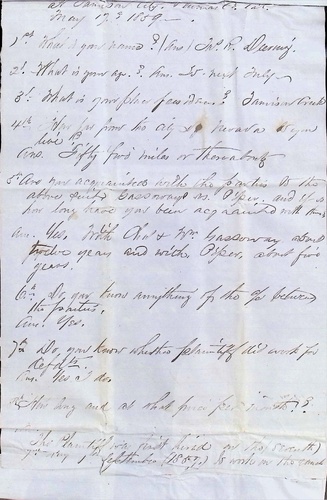 at Jamison City,
May 17th 1859.
1st What is your name? (Ans) Jas. R.
2d What is your age? Ans. 35 next July
3d What is your place of residence? Jamison Creek
4th How far from the city of Nevada do you
live?
Ans. Fifty five miles or thereabouts
5th Are you acquainted with the parties to the
above suit Gassoway vs. Piper, and if so
how long have you been acquainted with them
An. Yes, With Chas & Wm Gassoway about
twelve years and with Piper, about five
years.
6th Do you know anything of the between
the parties.
Ans. Yes.
7th Do, you know whether plaintiff did work for
defdt.
An. Yes I do.
8th How long and at what price per month?
The plantiff was first hired on the (seventh)
September (1857.) to work on the canal